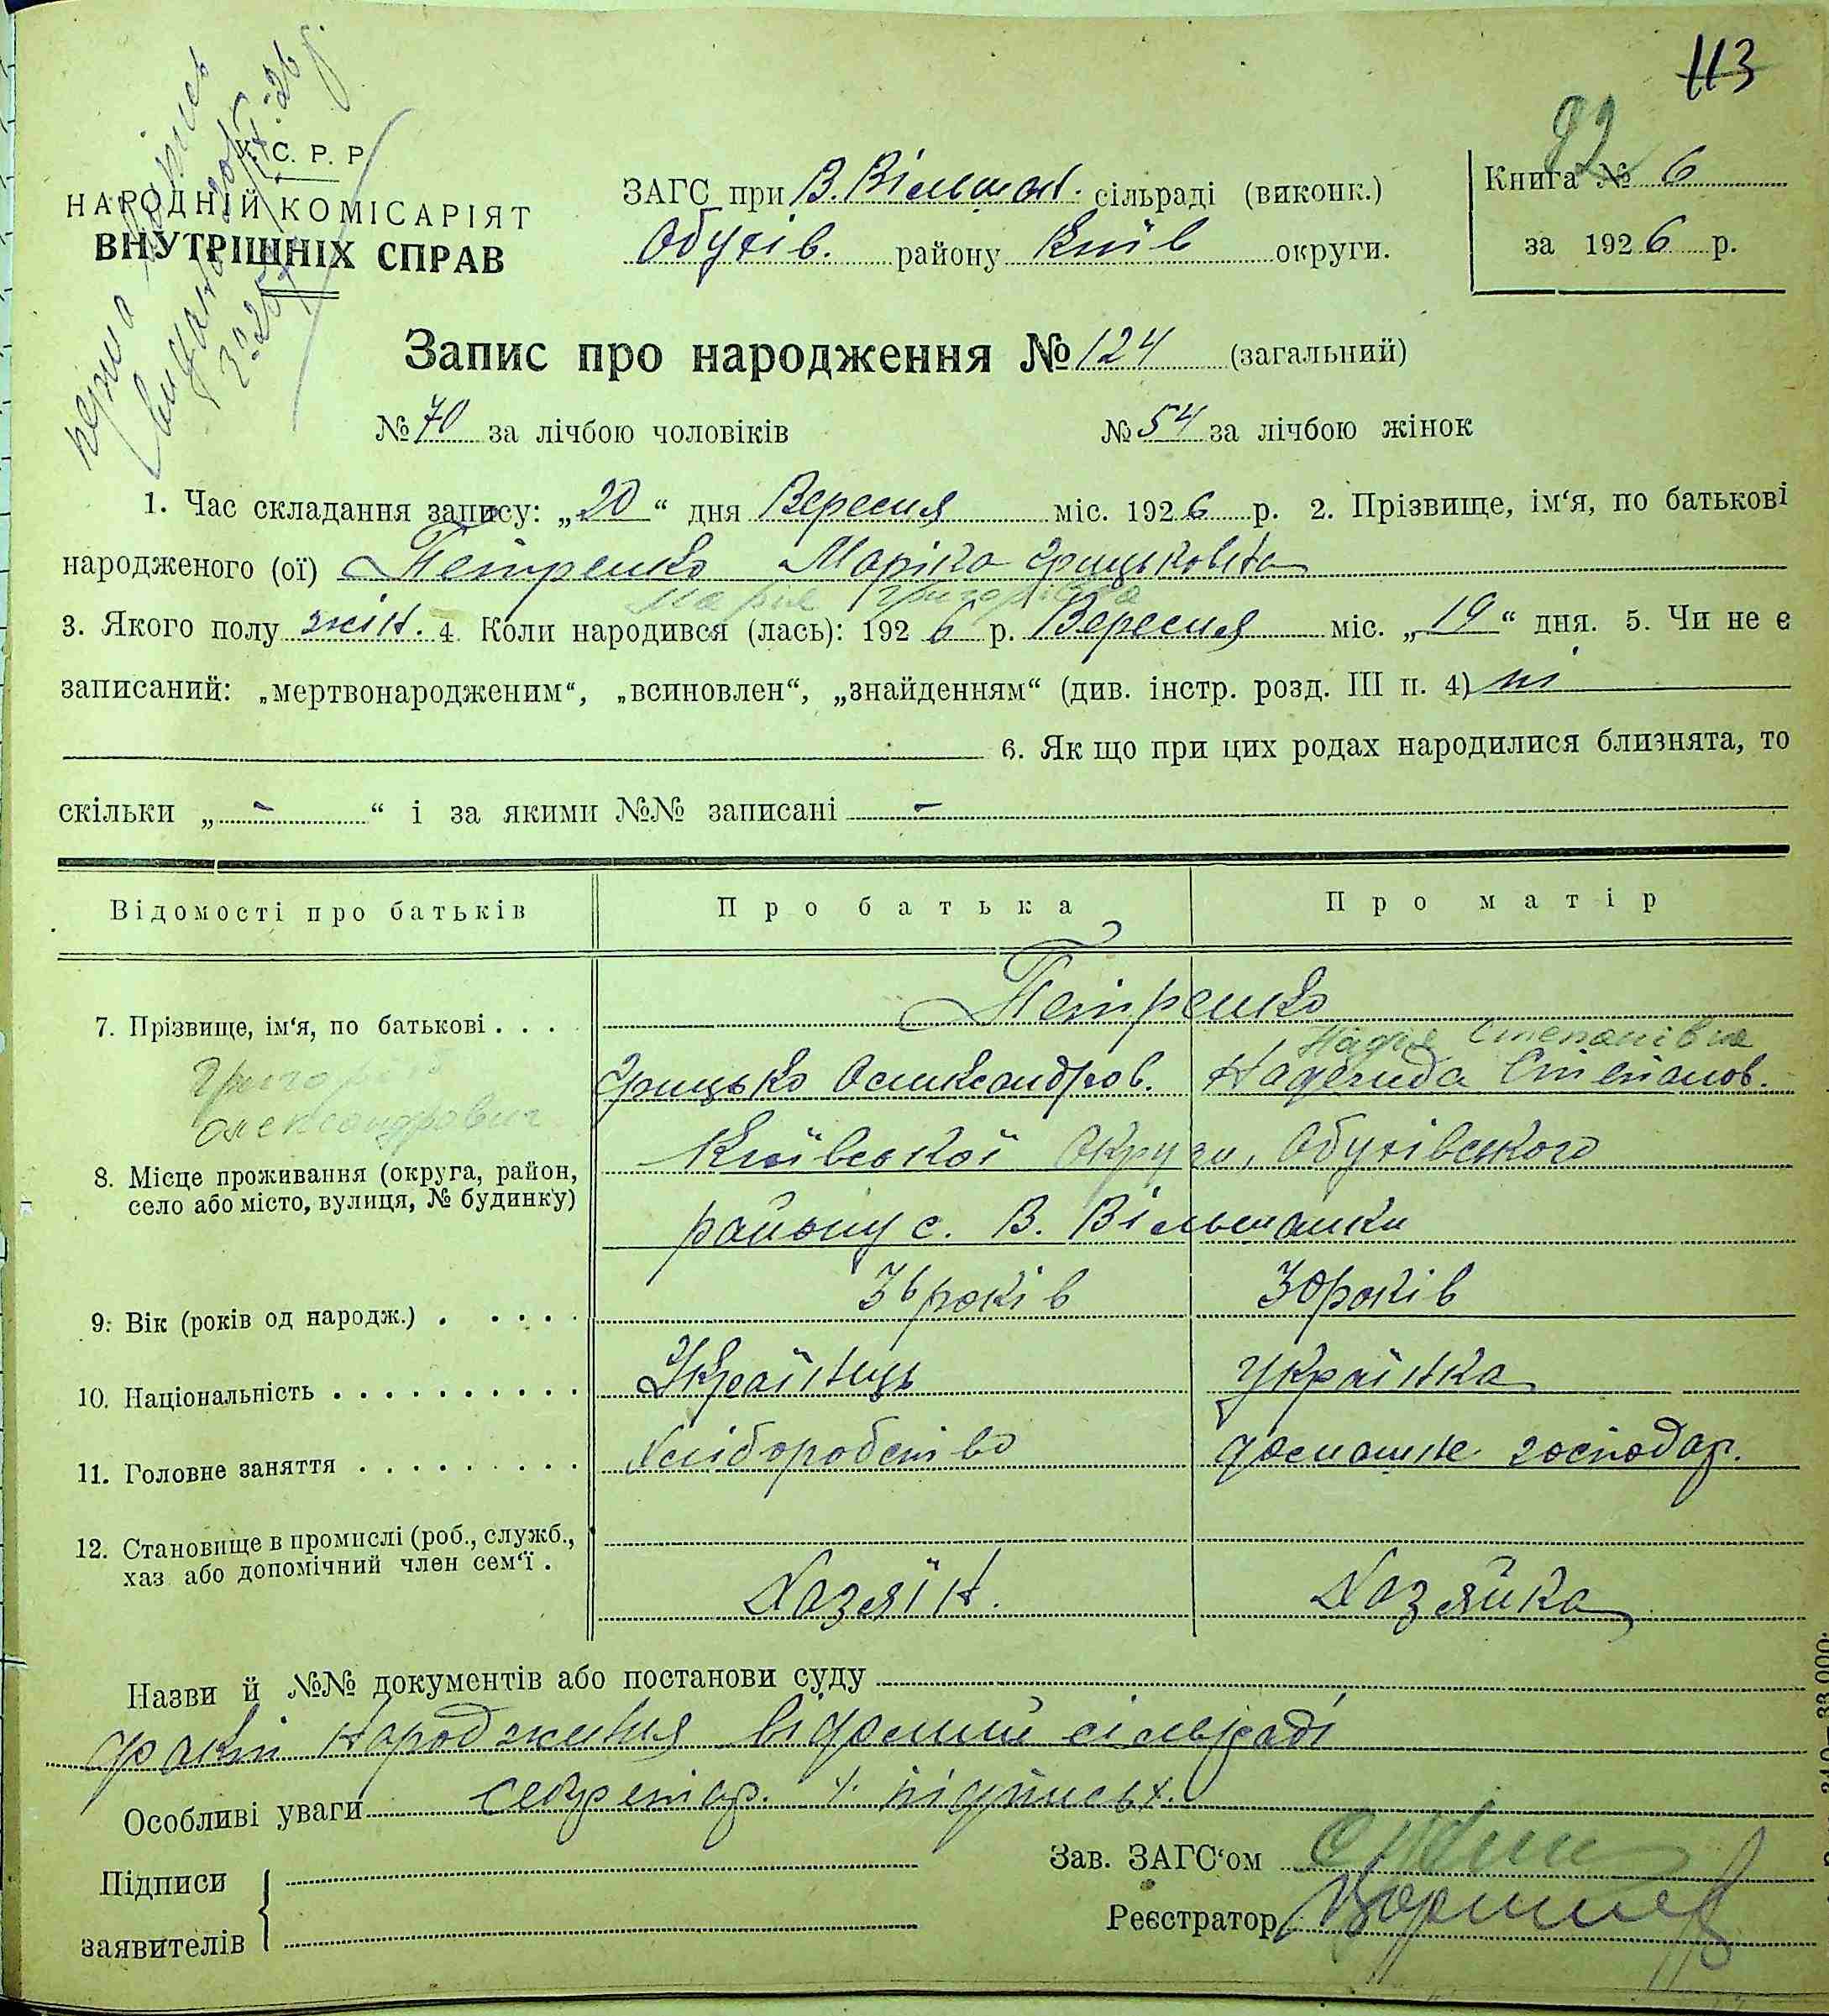 113
92
У. С. Р. Р.
НАРОДНІЙ КОМІСАРІЯТ
ВНУТРІШНІХ СПРАВ
ЗАГС при В. Вільшан. сільраді (виконк.)
Обухів. району Київ округи.
Книга № 6
за 1926 р.
Запис про народження № 124 (загальний)
№ 70 за лічбою чоловіків № 54 за лічбою жінок
1. Час складання запису: „20“ дня Вересня міс. 1926 р. 2. Прізвище, ім‘я, по батькові
народженого (ої) Петренко Марійка Грицьковна
Марія Григорівна
3. Якого полу жін. 4. Коли народився (лась): 1926 р. Вересня міс. „19“ дня. 5. Чи не є
записаний: „мертвонародженим“, „всиновлен“, „знайденням“ (див. інстр. розд. III п. 4) ні
6. Як що при цих родах народилися близнята, то
скільки „ - “ і за якими №№ записані -
Відомості про батьків Про батька Про матір
Петренко
7. Прізвище, ім‘я, по батькові . . .
Надія Степанівна
Григорій Грицько Олександров. Надежида Степанов.
Олександрович
Київської Округи, Обухівського
8. Місце проживання (округа, район,
село або місто, вулиця, № будинку)
району с. В. Вільшанки
9. Вік (років од народж.) . . . . . 36 років 30 років
10. Національність . . . . . . . . . . . Українець Українка
11. Головне заняття . . . . . . . . . Хліборобство домашнє господар.
12. Становище в промислі (роб., служб.,
хаз або допомічний член сем‘ї .
Хазяїн. Хазяйка
Назви й №№ документів або постанови суду
факт народження відомий сільраді
Особливі уваги секретар. /підпись/.
Підписи
заявителів
Зав. ЗАГС‘ом
Реєстратор